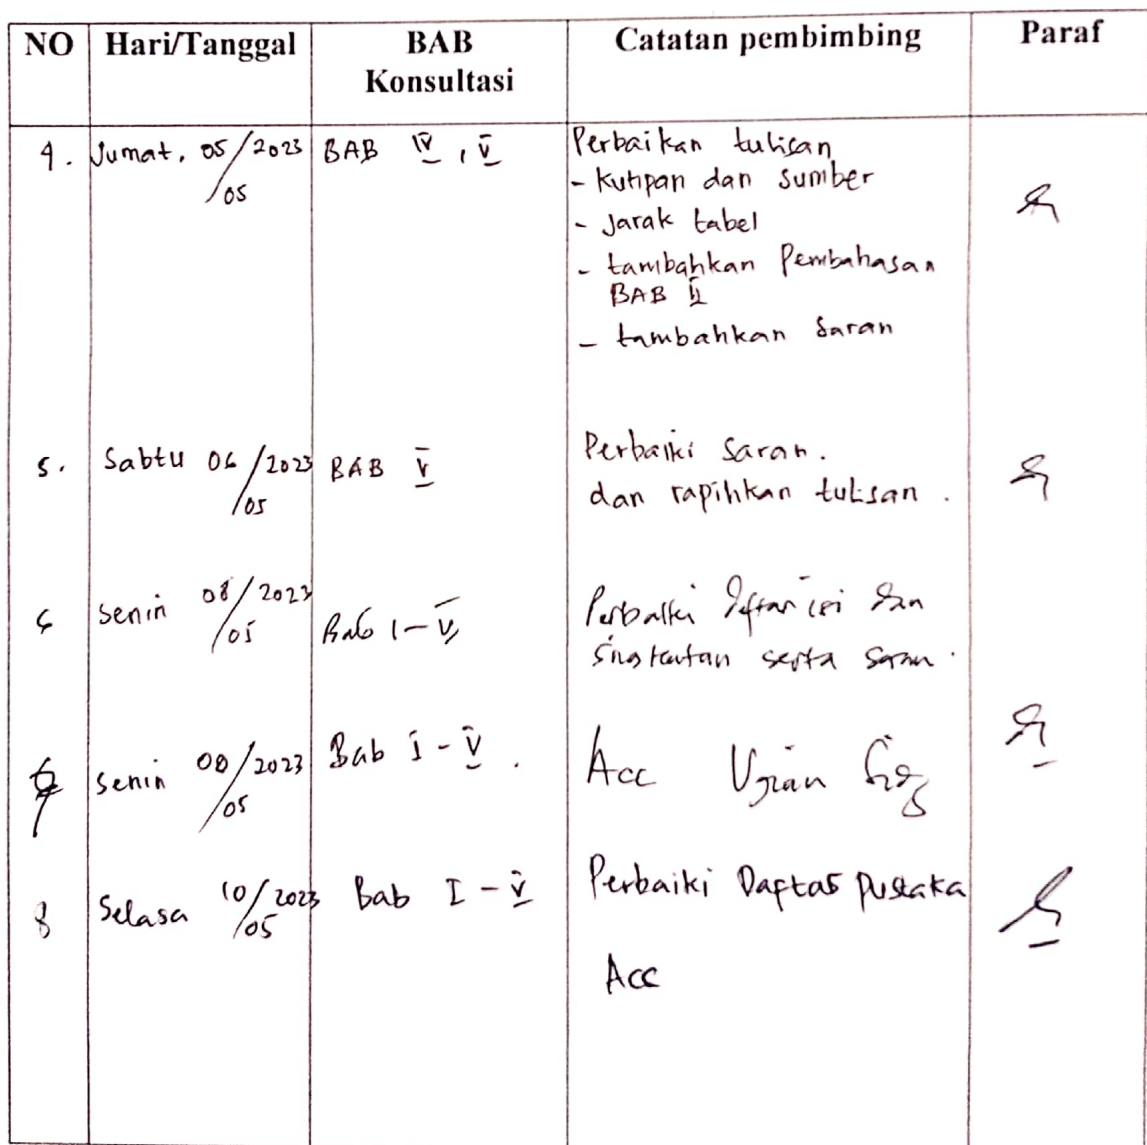 NO Hari/Tanggal BAB Konsultasi Catatan pembimbing Paraf
4. Jumat, 05/05/2023 BAB IV, V Perbaikan tulisan
- kutipan dan sumber
- Jarak tabel
- tambahkan Pembahasan
BAB II
- tambahkan Saran
5. Sabtu 06/05/2023 BAB V Perbaiki saran.
dan rapihkan tulisan.
6 Senin 08/05/2023 Bab I-V Perbaiki daftar isi dan
singkatan serta saran.
7 Senin 08/05/2023 Bab I - V. Acc Ujian
8 Selasa 10/05/2023 Bab I - V Perbaiki Daftar pustaka
Acc